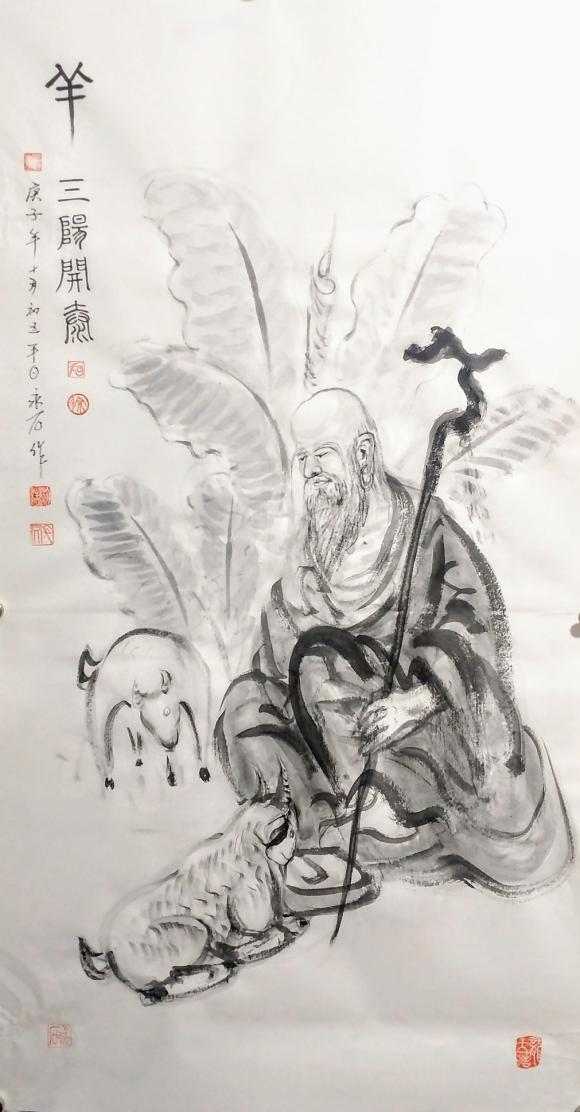 羊
三陽開泰
庚子年十月初五平日永石作